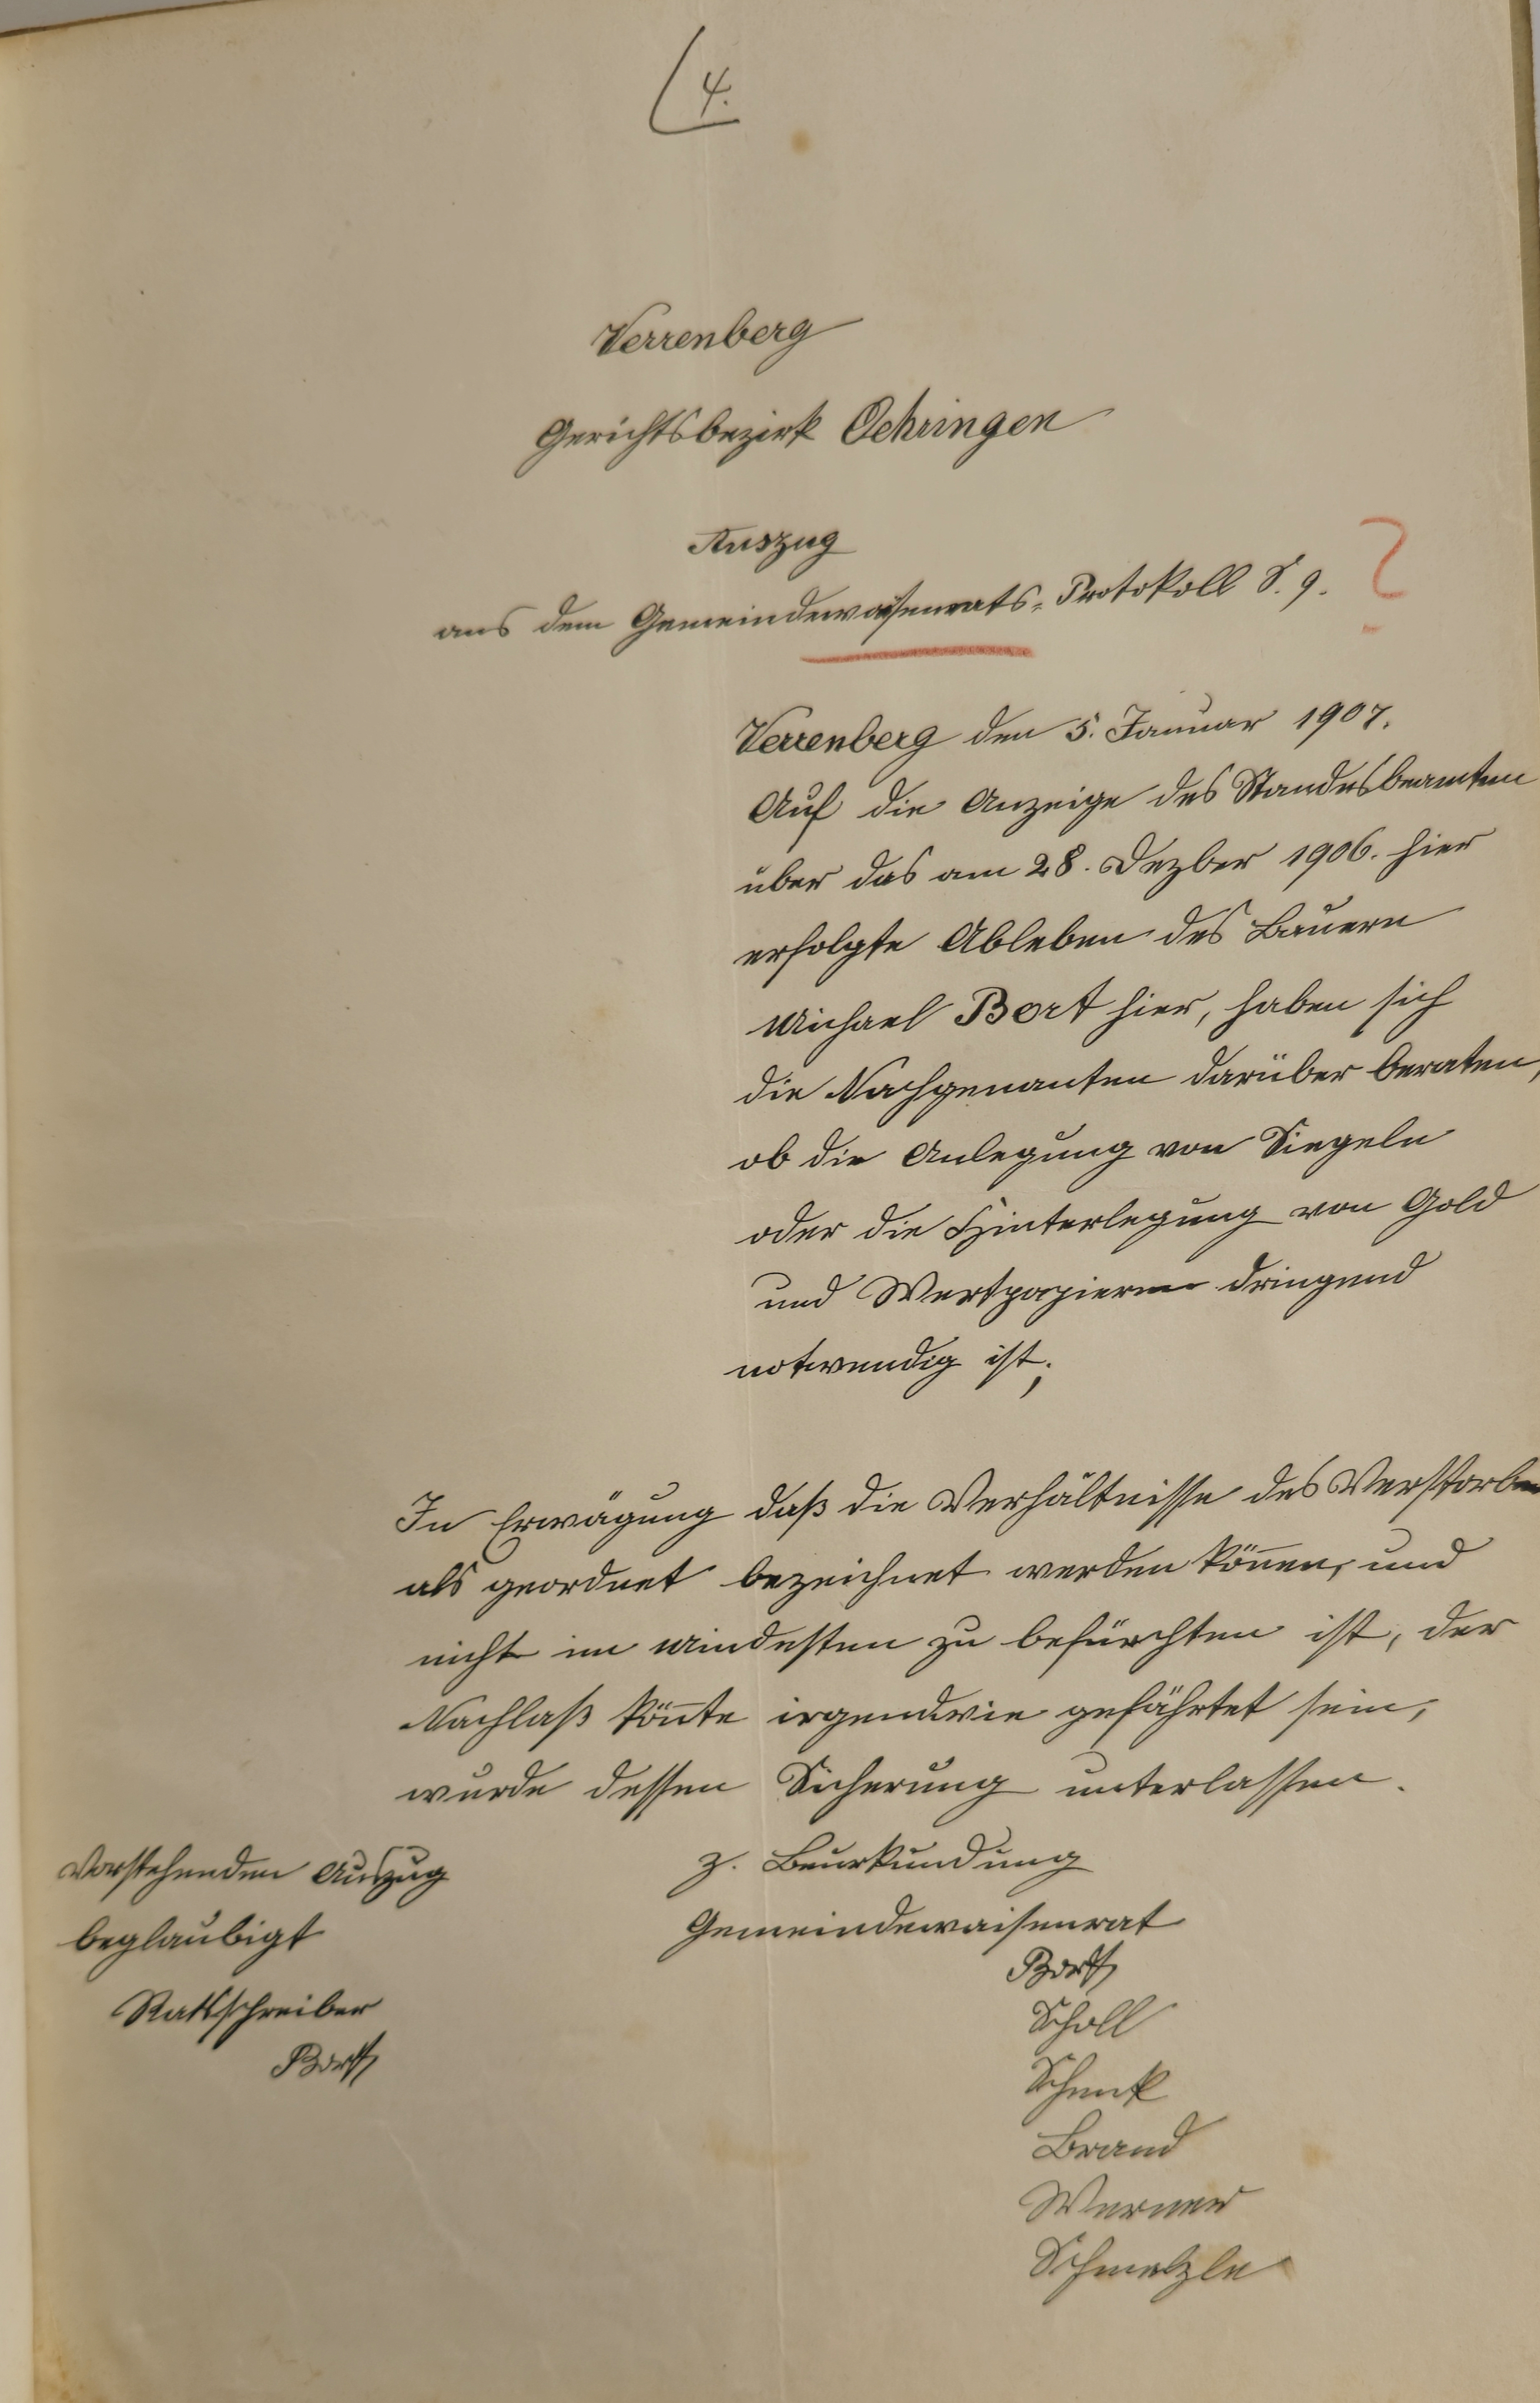 4.
Verrenberg
Gerichtsbezirk Oehringen
Auszug
aus dem Gemeindewaisenrats-Protokoll S. 9. ?
Verrenberg den 5. Januar 1907.
Auf die Anzeige des Standesbeamten
über das am 28. Dezber 1906. hier
erfolgte Ableben des Bauern
Michael Bort hier, haben sich
die Nachgenanten darüber beraten,
ob die Anlegung von Siegeln
oder die Hinterlegung von Gold
und Wertpapieren dringend
notwendig ist;
In Erwägung daß die Verhältnisse des Verstorben
als geordnet bezeichnet werden kön̄en, und
nicht im Mindesten zu befürchten ist, der
Nachlaß kön̄te irgendwie gefährtet sein,
wurde dessen Sicherung unterlassen.
z. Beurkundung
Gemeindewaisenrat
Bort
Scholl
Schenk
Brand
Werner
Schmelzle
Vorstehenden Auszug
beglaubigt
Ratsschreiber
Bort